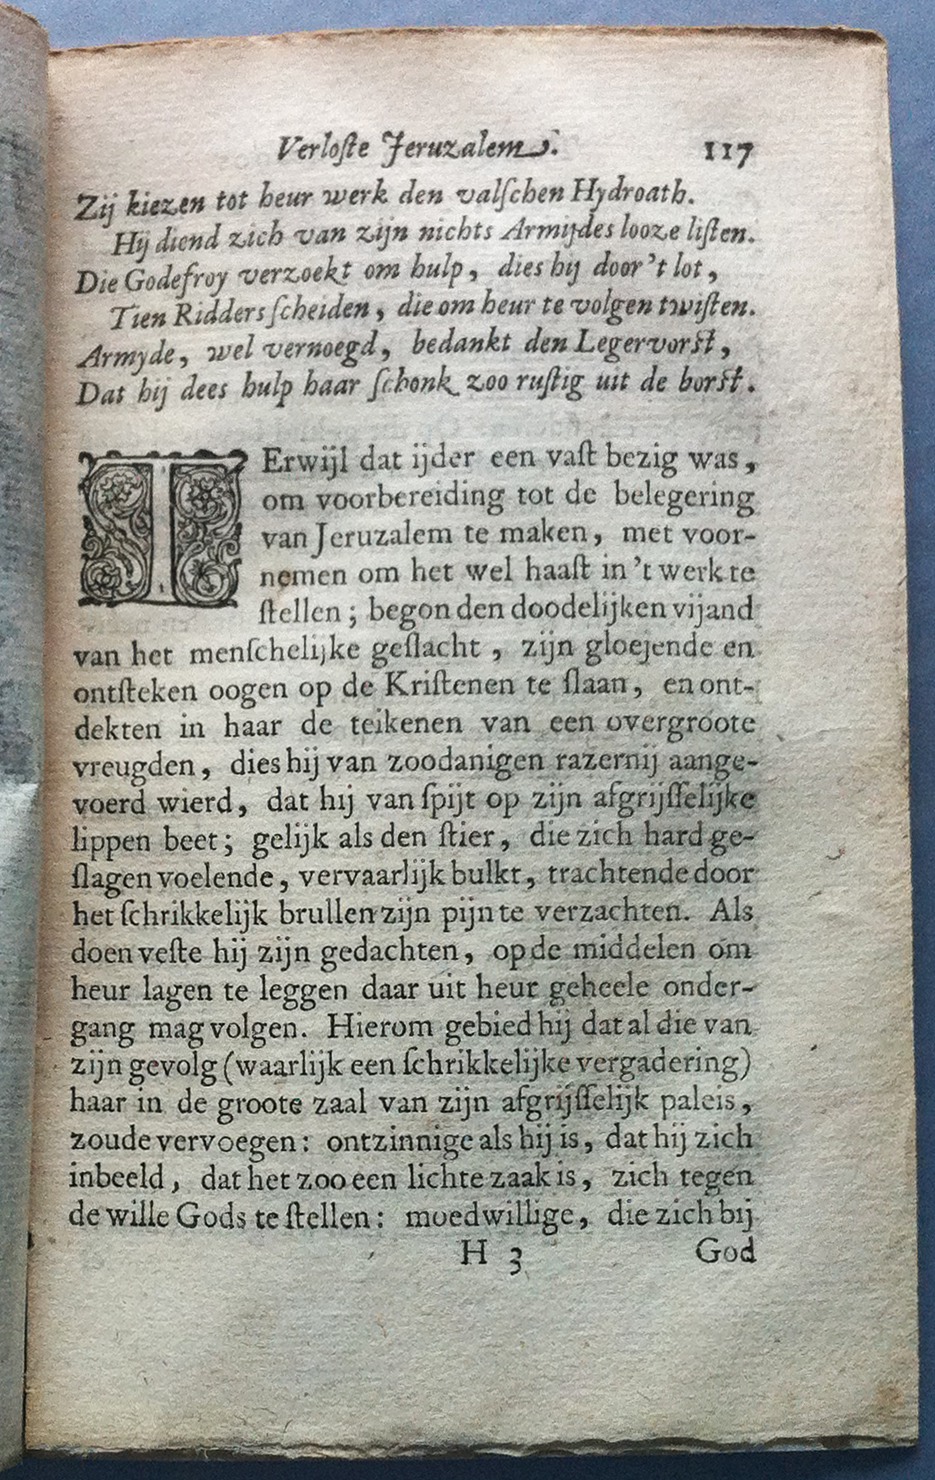 Verloſte Jeruzalem. 117
Zij kiezen tot heur werk den valſchen Hydroath.
Hij diend zich van zijn nichts Armijdes looze liſten.
Die Godefroy verzoekt om hulp, dies hij door 't lot,
Tien Ridders ſcheiden, die om heur te volgen twiſten.
Armyde, wel vernoegd, bedankt den Legervorſt,
Dat hij dees hulp haar ſchonk zoo ruſtig uit de borſt.
TErwijl dat ijder een vaſt bezig was,
om voorbereiding tot de belegering
van Jeruzalem te maken, met voor-
nemen om het wel haaſt in 't werk te
ſtellen; begon den doodelijken vijand
van het menſchelijke geſlacht, zijn gloejende en
ontſteken oogen op de Kriſtenen te ſlaan, en ont-
dekten in haar de teikenen van een overgroote
vreugden, dies hij van zoodanigen razernij aange-
voerd wierd, dat hij van ſpijt op zijn afgrijſſelijke
lippen beet; gelijk als den ſtier, die zich hard ge-
ſlagen voelende, vervaarlijk bulkt, trachtende door
het ſchrikkelijk brullen zijn pijn te verzachten. Als
doen veſte hij zijn gedachten, op de middelen om
heur lagen te leggen daar uit heur geheele onder-
gang mag volgen. Hierom gebied hij dat al die van
zijn gevolg (waarlijk een ſchrikkelijke vergadering)
haar in de groote zaal van zijn afgrijſſelijk paleis,
zoude vervoegen: ontzinnige als hij is, dat hij zich
inbeeld, dat het zoo een lichte zaak is, zich tegen
de wille Gods te ſtellen: moedwillige, die zich bij
H 3 God